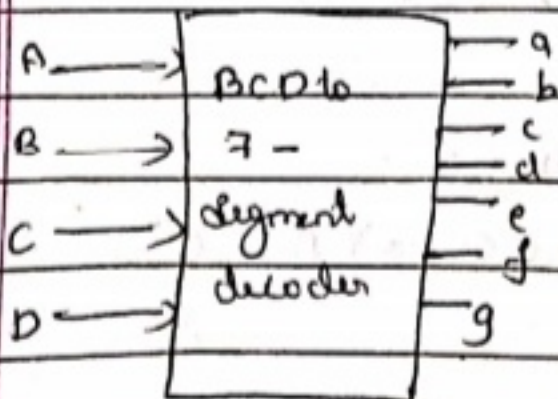 A
B
C
D
BCD to
7 -
Segment
decoder
a
b
c
d
e
f
g